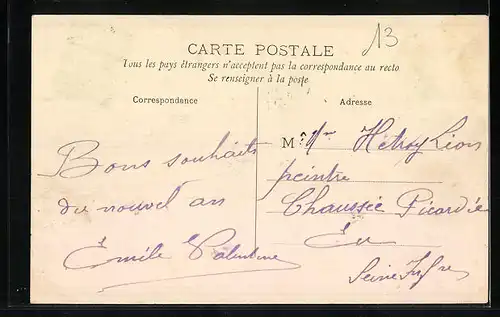 13
CARTE POSTALE
Tous les pays étrangers n'acceptent pas la correspondance au recto
Se renseigner à la poste
Correspondance
Adresse
Bons souhaits
du nouvel an
Émile
M Léon
peintre
Chaussée Picardie
Eu
Seine Infre